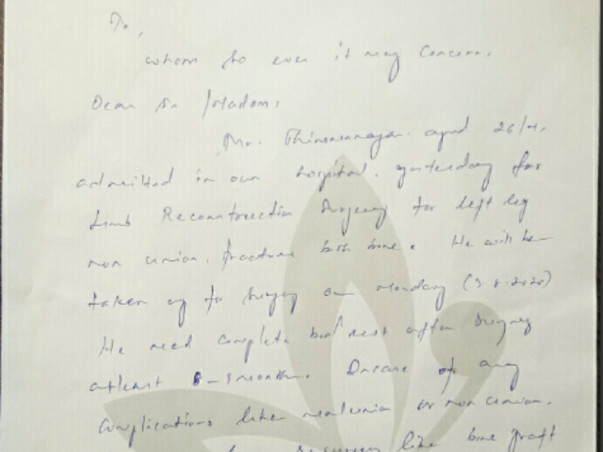 To,
whom so ever it may concern.
Dear Sir / Madam,
Mr. aged 26/M,
admitted in our hospital. yesterday for
Limb Reconstruction Surgery for left leg
non union. fracture both bone. He will be
taken up for surgery on Monday (3.8.2020)
He need complete bed rest after Surgery
atleast months. Incase of any
Complications like malunion or non union.
like bone graft